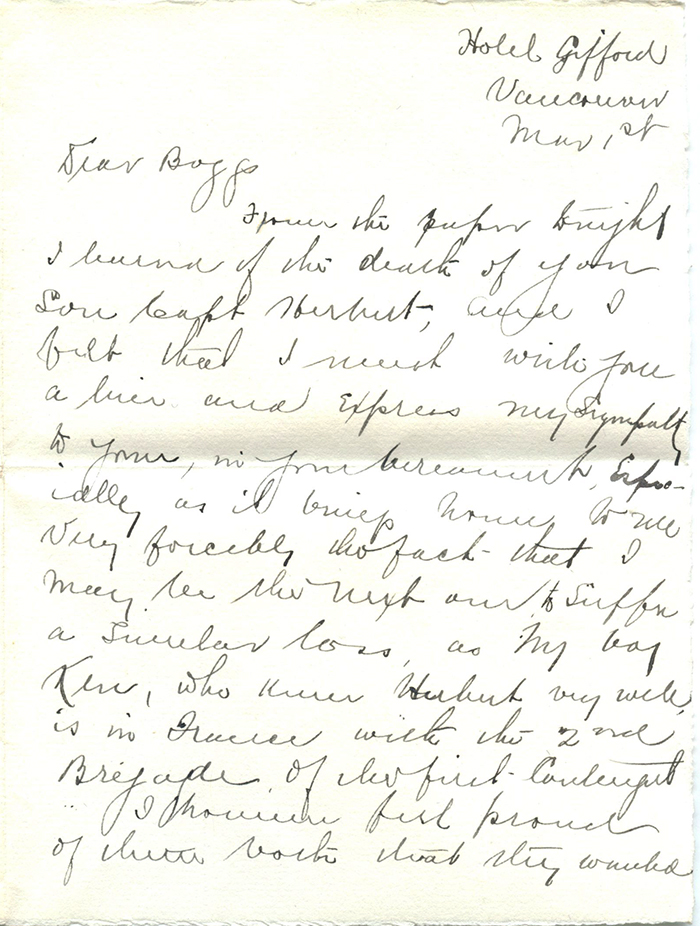 Hotel Gifford
Vancouver
Mar 1st
Dear Boggs
From the paper tonight
I learned of the death of your
Son Capt Herbert, and I
felt that I must write you
a line and Express my Sympathy
to you, in your bereavment, Espec-
ially as it brings home to me
Very forcibly the fact that I
may be the next one to Suffer
a Similar loss, as My boy
Ken, who knew Herbert very well,
is in France with the 2nd
Brigade of the first Contengent
I however feel proud
of them both that they wanted